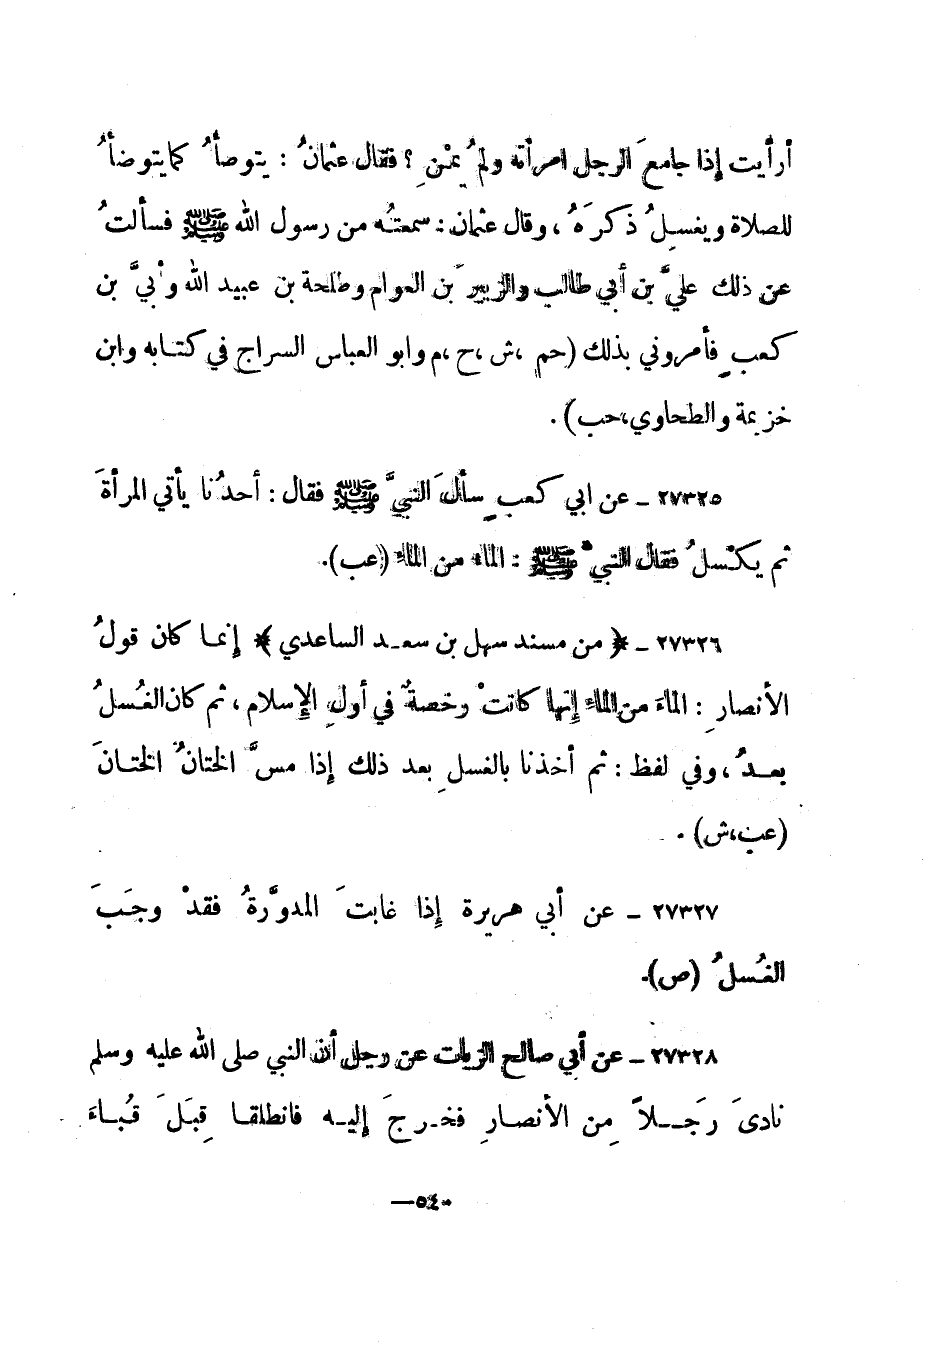 أرأيت إذا جامعَ الرجل امرأته ولمُ يمْنِ ؟ فقال عثمانُ : يتوصأُ كما يتوضأُ
للصلاة ويغسلُ ذكرَهُ ، وقال عثمان : سمعتُه من رسول الله ﷺ فسألتُ
عن ذلك عليَّ بن أبي طالب والزبيرَ بن العوام وطلحة بن عبيد الله وأبيَّ بن
كعبٍ فأمروني بذلك (حم ،ش ،خ ،م وابو العباس السراج في كتابه وابن
خزيمة والطحاوي،حب) .
٢٧٣٢٥ ـ عن ابي كعبٍ سألَ النبيَّ ﷺ فقال : أحدُنا يأتي المرأةَ
ثم يكْسلُ فقال النبي ﷺ : الماء من الماء (عب).
٢٧٣٢٦ ـ ﴿ من مسند سهل بن سعد الساعدي ﴾ إنما كان قولُ
الأنصارِ : الماءَ من الماء إنها كانتْ رخصةٌ في أولِ الإسلام ، ثم كان الغُسلُ
بعدُ ، وفي لفظ : ثم أخذنا بالغسلِ بعد ذلك إذا مسَّ الختانُ الختانَ
(عب،ش) .
٢٧٣٢٧ ـ عن أبي هريرة إذا غابتَ المدوَّرةُ فقدْ وجَبَ
الغُسلُ (ص).
٢٧٣٢٨ ـ عن أبي صالح الزيات عن رجل أن النبي صلى الله عليه وسلم
نادىَ رَجلاً من الأنصارِ فخرجَ إليه فانطلقا قِبَلَ قُباءَ
—٥٤٠